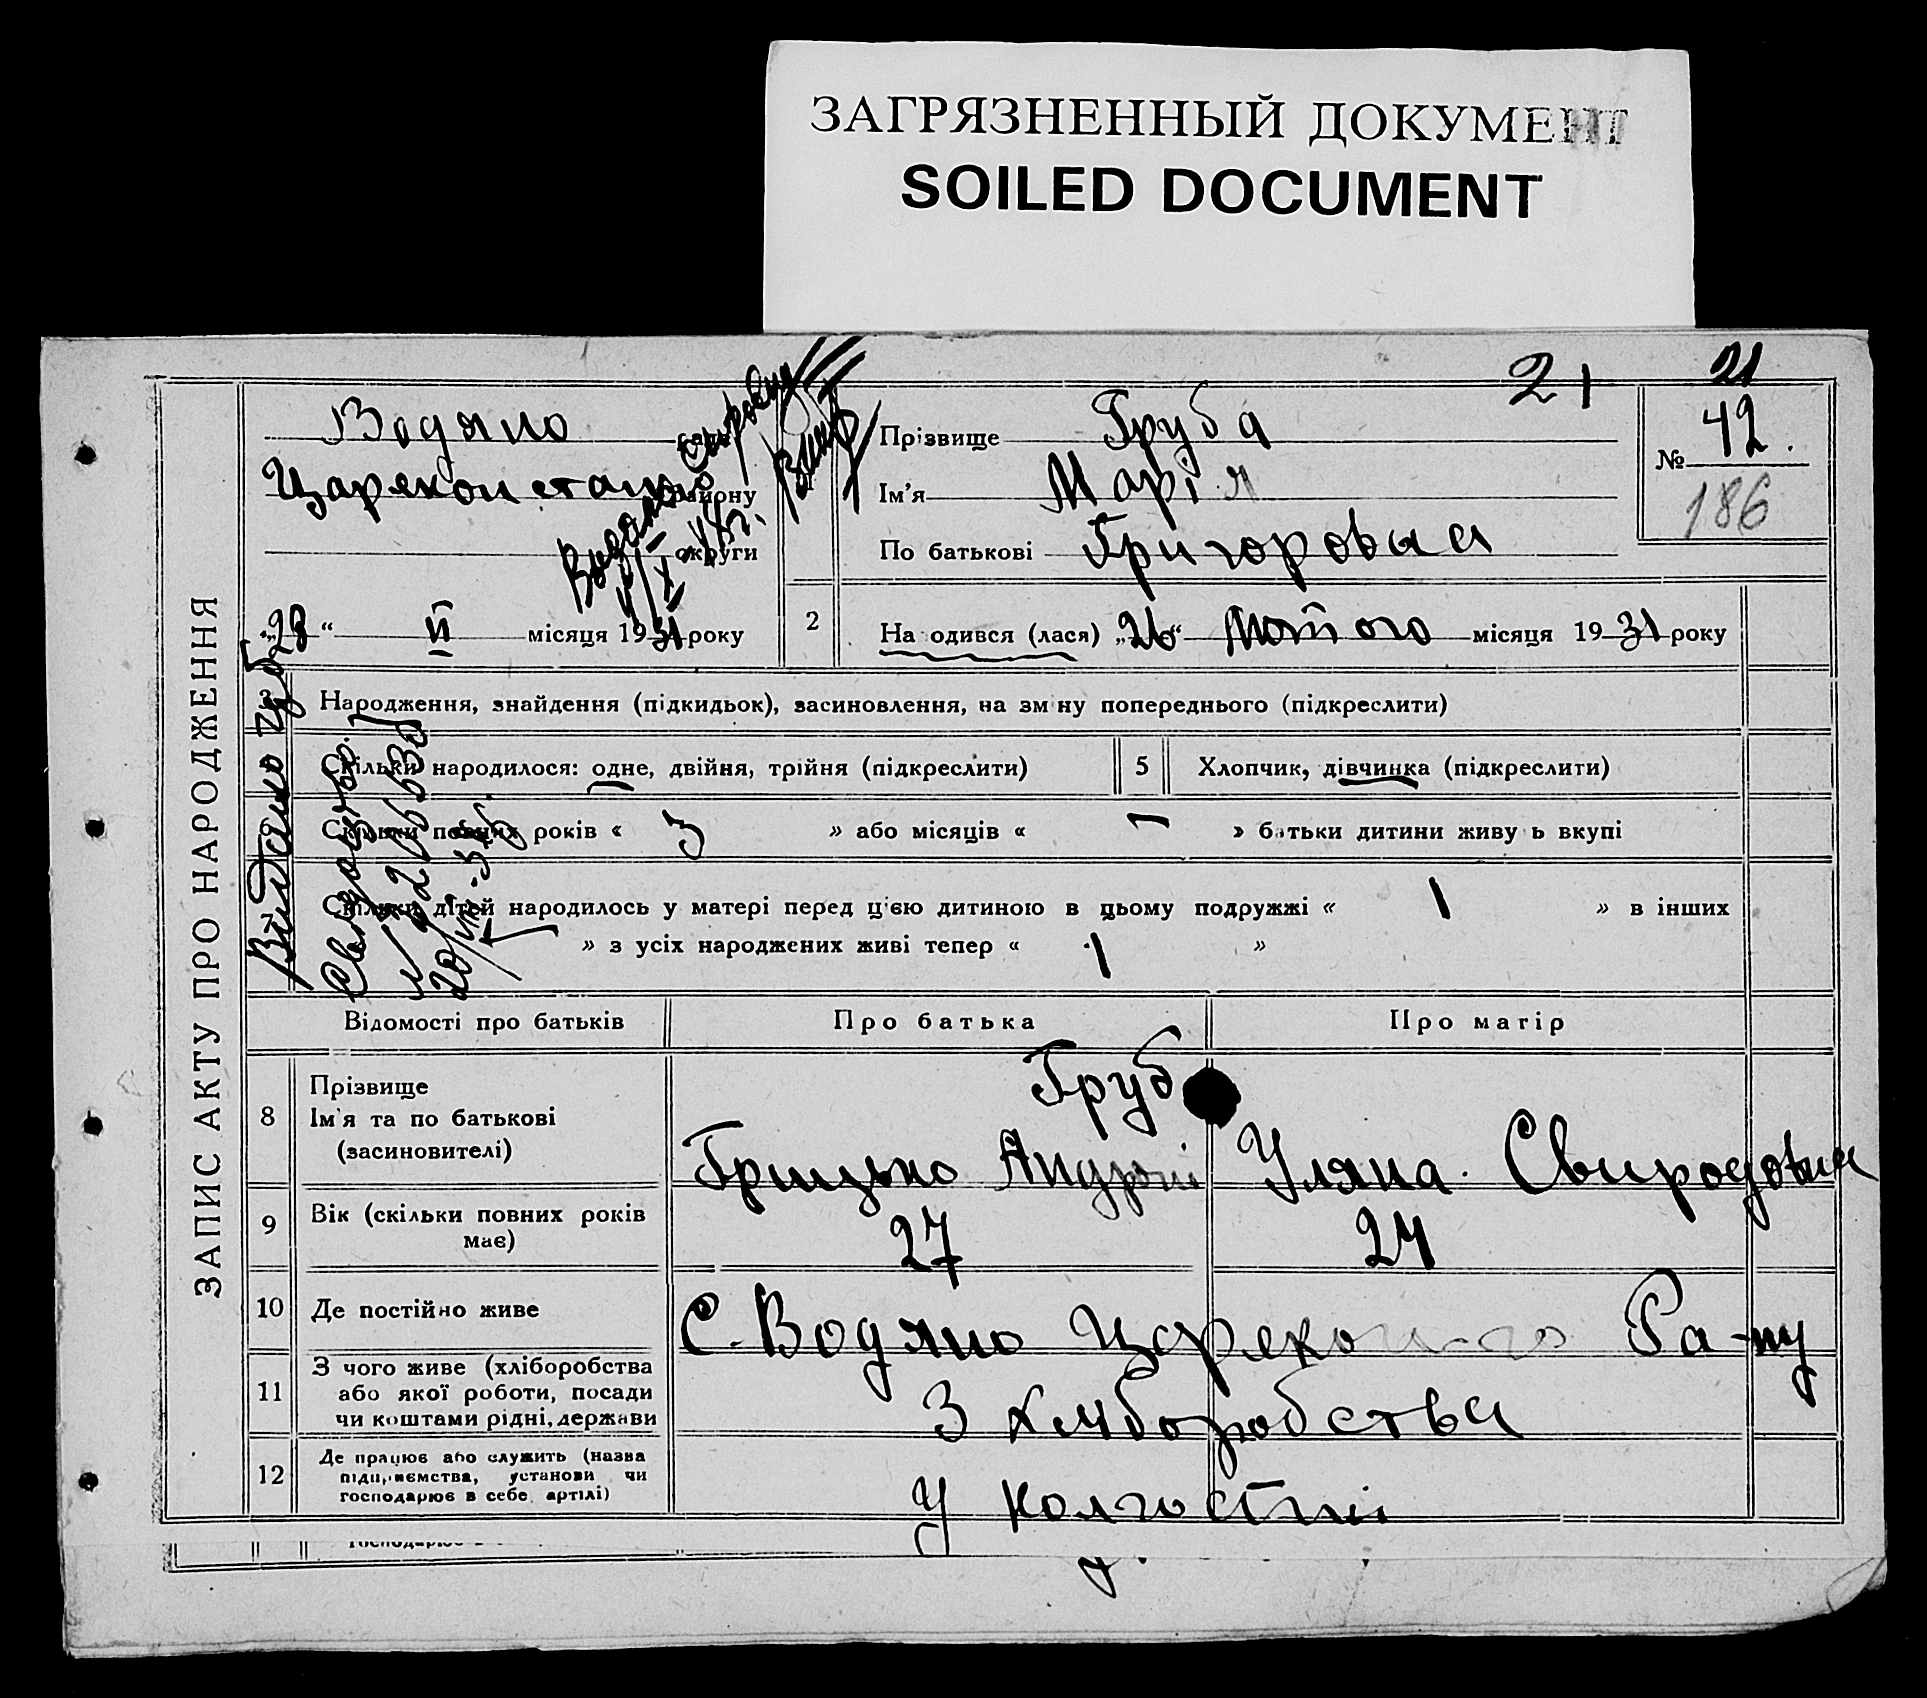 ЗАГРЯЗНЕННЫЙ ДОКУМЕНТ
SOILED DOCUMENT
21
21
ЗАПИС АКТУ ПРО НАРОДЖЕННЯ
Водяно
району
округи
„28“ II місяця 1931 року
Прізвище Груба
Ім’я Марія
По батькові Григоровна
№ 42.
186
2
На одився (лася) „26“ Лютого місяця 1931 року
3
Народження, знайдення (підкидьок), засиновлення, на зм ну попереднього (підкреслити)
Скільки народилося: одне, двійня, трійня (підкреслити)
5
Хлопчик, дівчинка (підкреслити)
Скільки повних років « 3 » або місяців « – » батьки дитини живу ь вкупі
7
Скільки дітей народилось у матері перед ц'єю дитиною в цьому подружжі « 1 » в інших
» з усіх народжених живі тепер « 1 »
Видано
Відомості про батьків
Про батька
Про матір
8
Прізвище
Ім'я та по батькові
(засиновителі)
Груб
Грицько
Уляна Свиродовна
9
Вік (скільки повних років
має)
27
24
10
Де постійно живе
С. Водяно Ра-ну
11
З чого живе (хліборобства
або якої роботи, посади
чи коштами рідні, держави
З хліборобства
12
Де працює або служить (назва
підприємства, установи чи
господарює в себе артілі)
У колгоспі